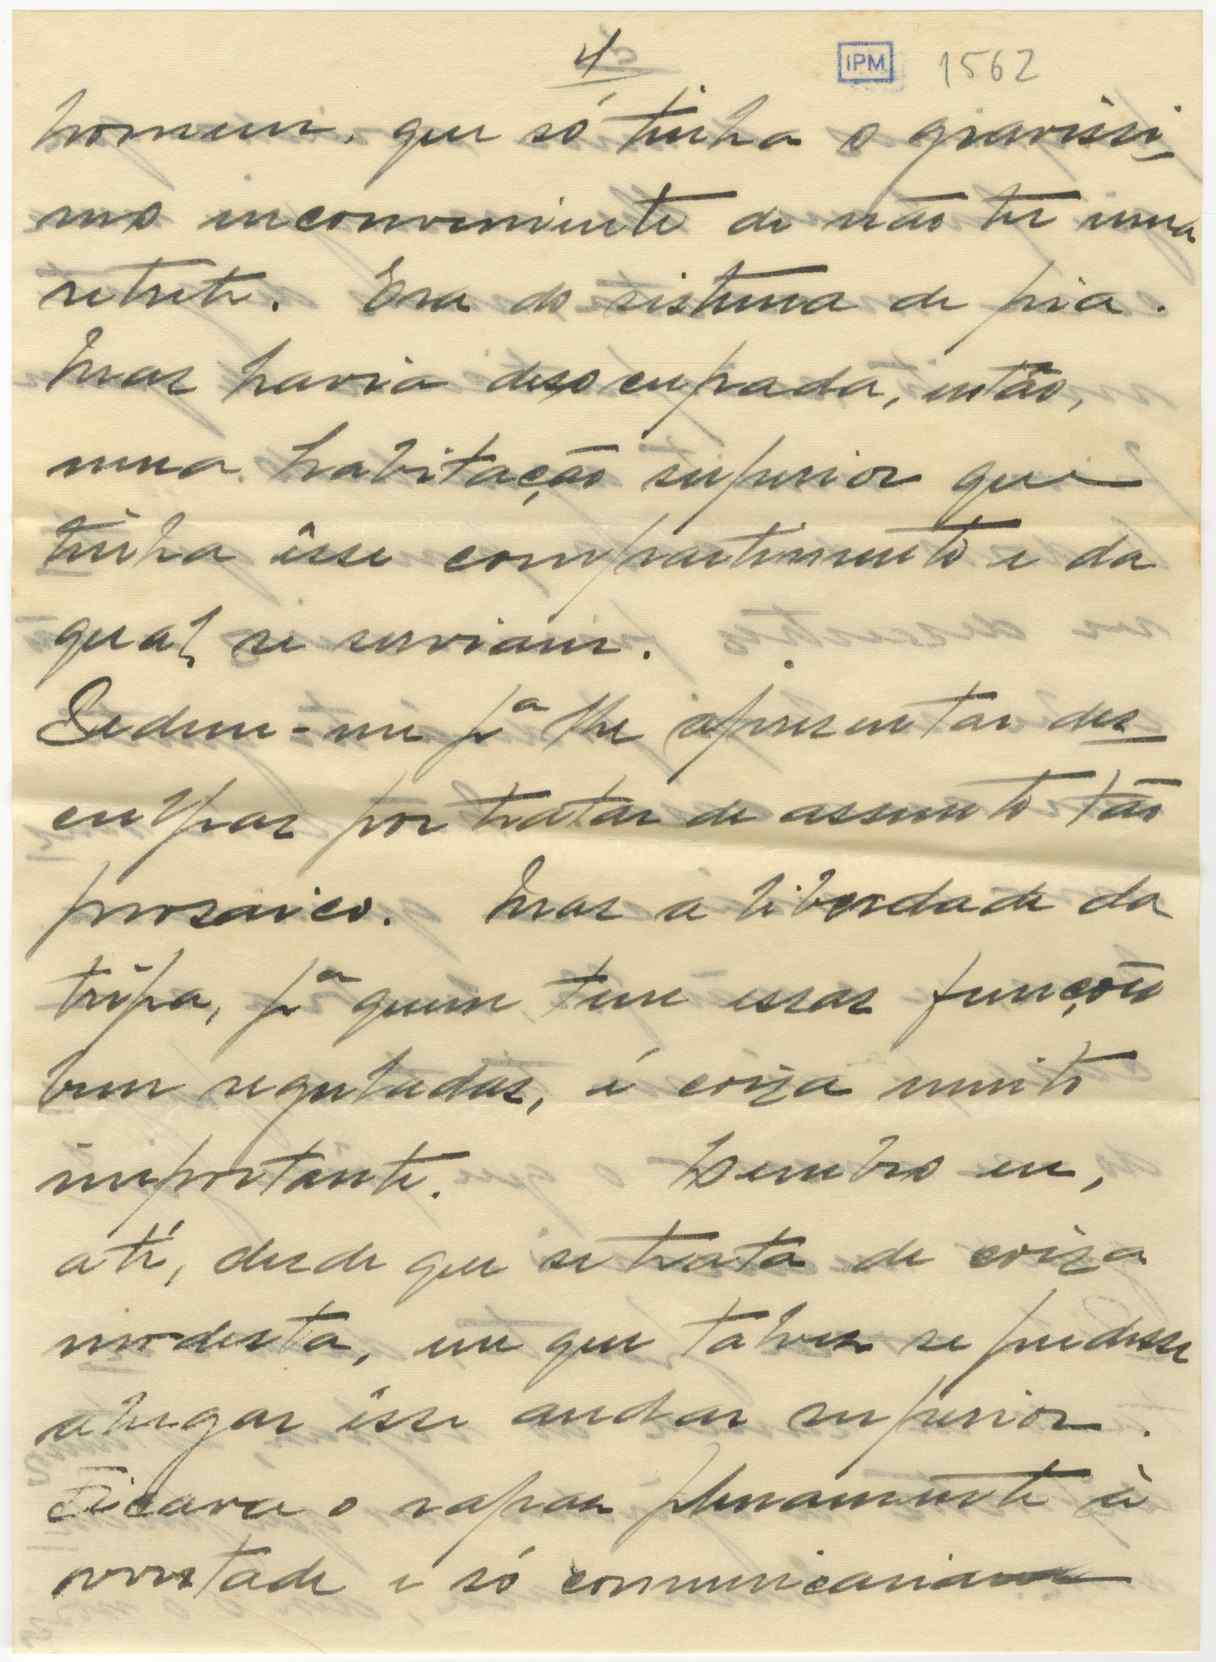 4
IPM 1562
homem, que só tinha o gravissi-
mo inconveniente de não ter uma
retrete. Era do sistema de pia.
Mas havia desocupada, então,
uma habitação superior que
tinha êsse compartimento e da
qual se serviam.
Pedem-me pª lhe apresentar des-
culpas por tratar de assunto tão
prosaico. Mas a liberdade da
tripa, pª quem tem essas funções
bem reguladas, é coisa muito
importante. Lembro eu,
até, desde que se trata de coisa
modesta, em que talvez se pudesse
alugar êsse andar superior.
Ficava o rapaz plenamente à
vontade e só comunicariam